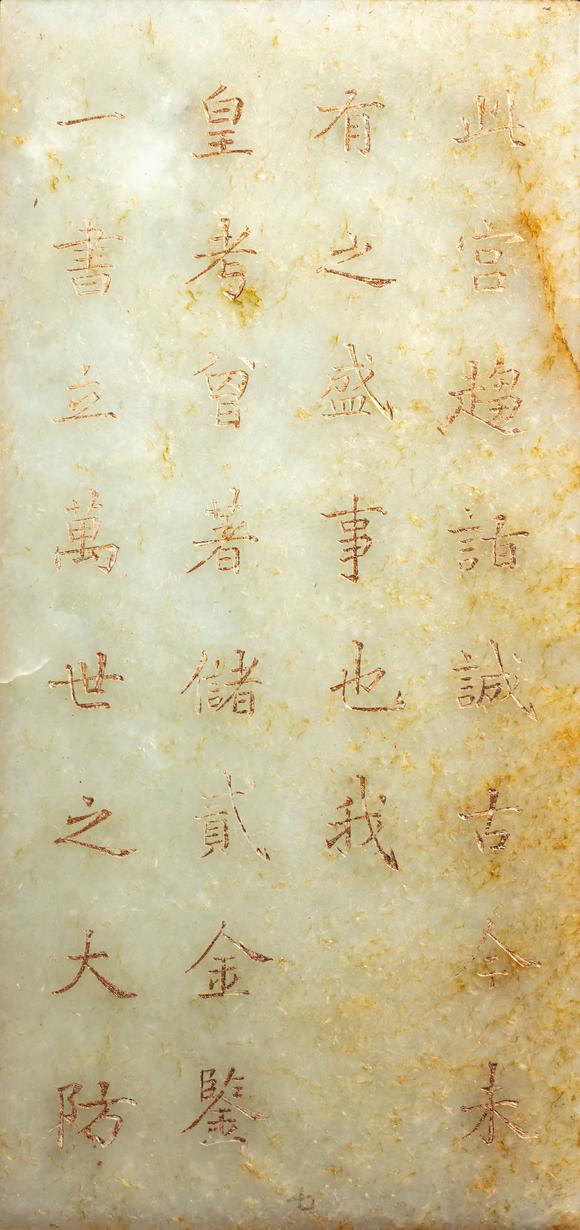 此宮趨詣誠古今未
有之盛事也我
皇考曾著儲貳金鑒
一書立萬世之大防
七